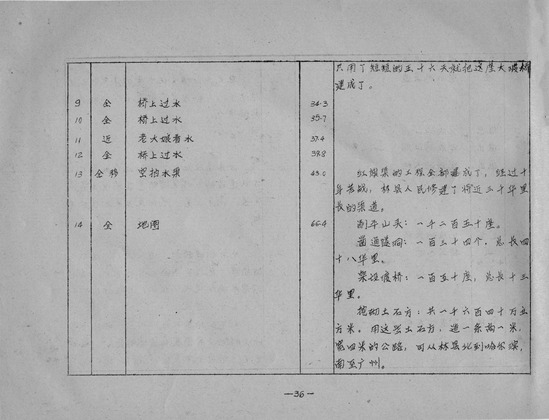 只用了短短的五十六天就把这座大渡桥
建成了。
9 全 桥上过水 34.3
10 全 桥上过水 35.7
11 近 老大娘看水 37.4
12 全 桥上过水 39.8
13 全移 空拍水渠 43.0 红旗渠的工程全部建成了，经过十
年苦战，林县人民修建了将近三千华里
长的渠道。
14 全 地图 66.4 削平山头：一千二百五十座。
凿通隧洞：一百三十四个，总长四
十八华里。
架设渡桥：一百五十座，总长十三
华里。
挖砌土石方：共一千六百四十万立
方米。用这些土石方，造一条高一米，
宽四米的公路，可从林县北到哈尔滨，
南至广州。
—36—